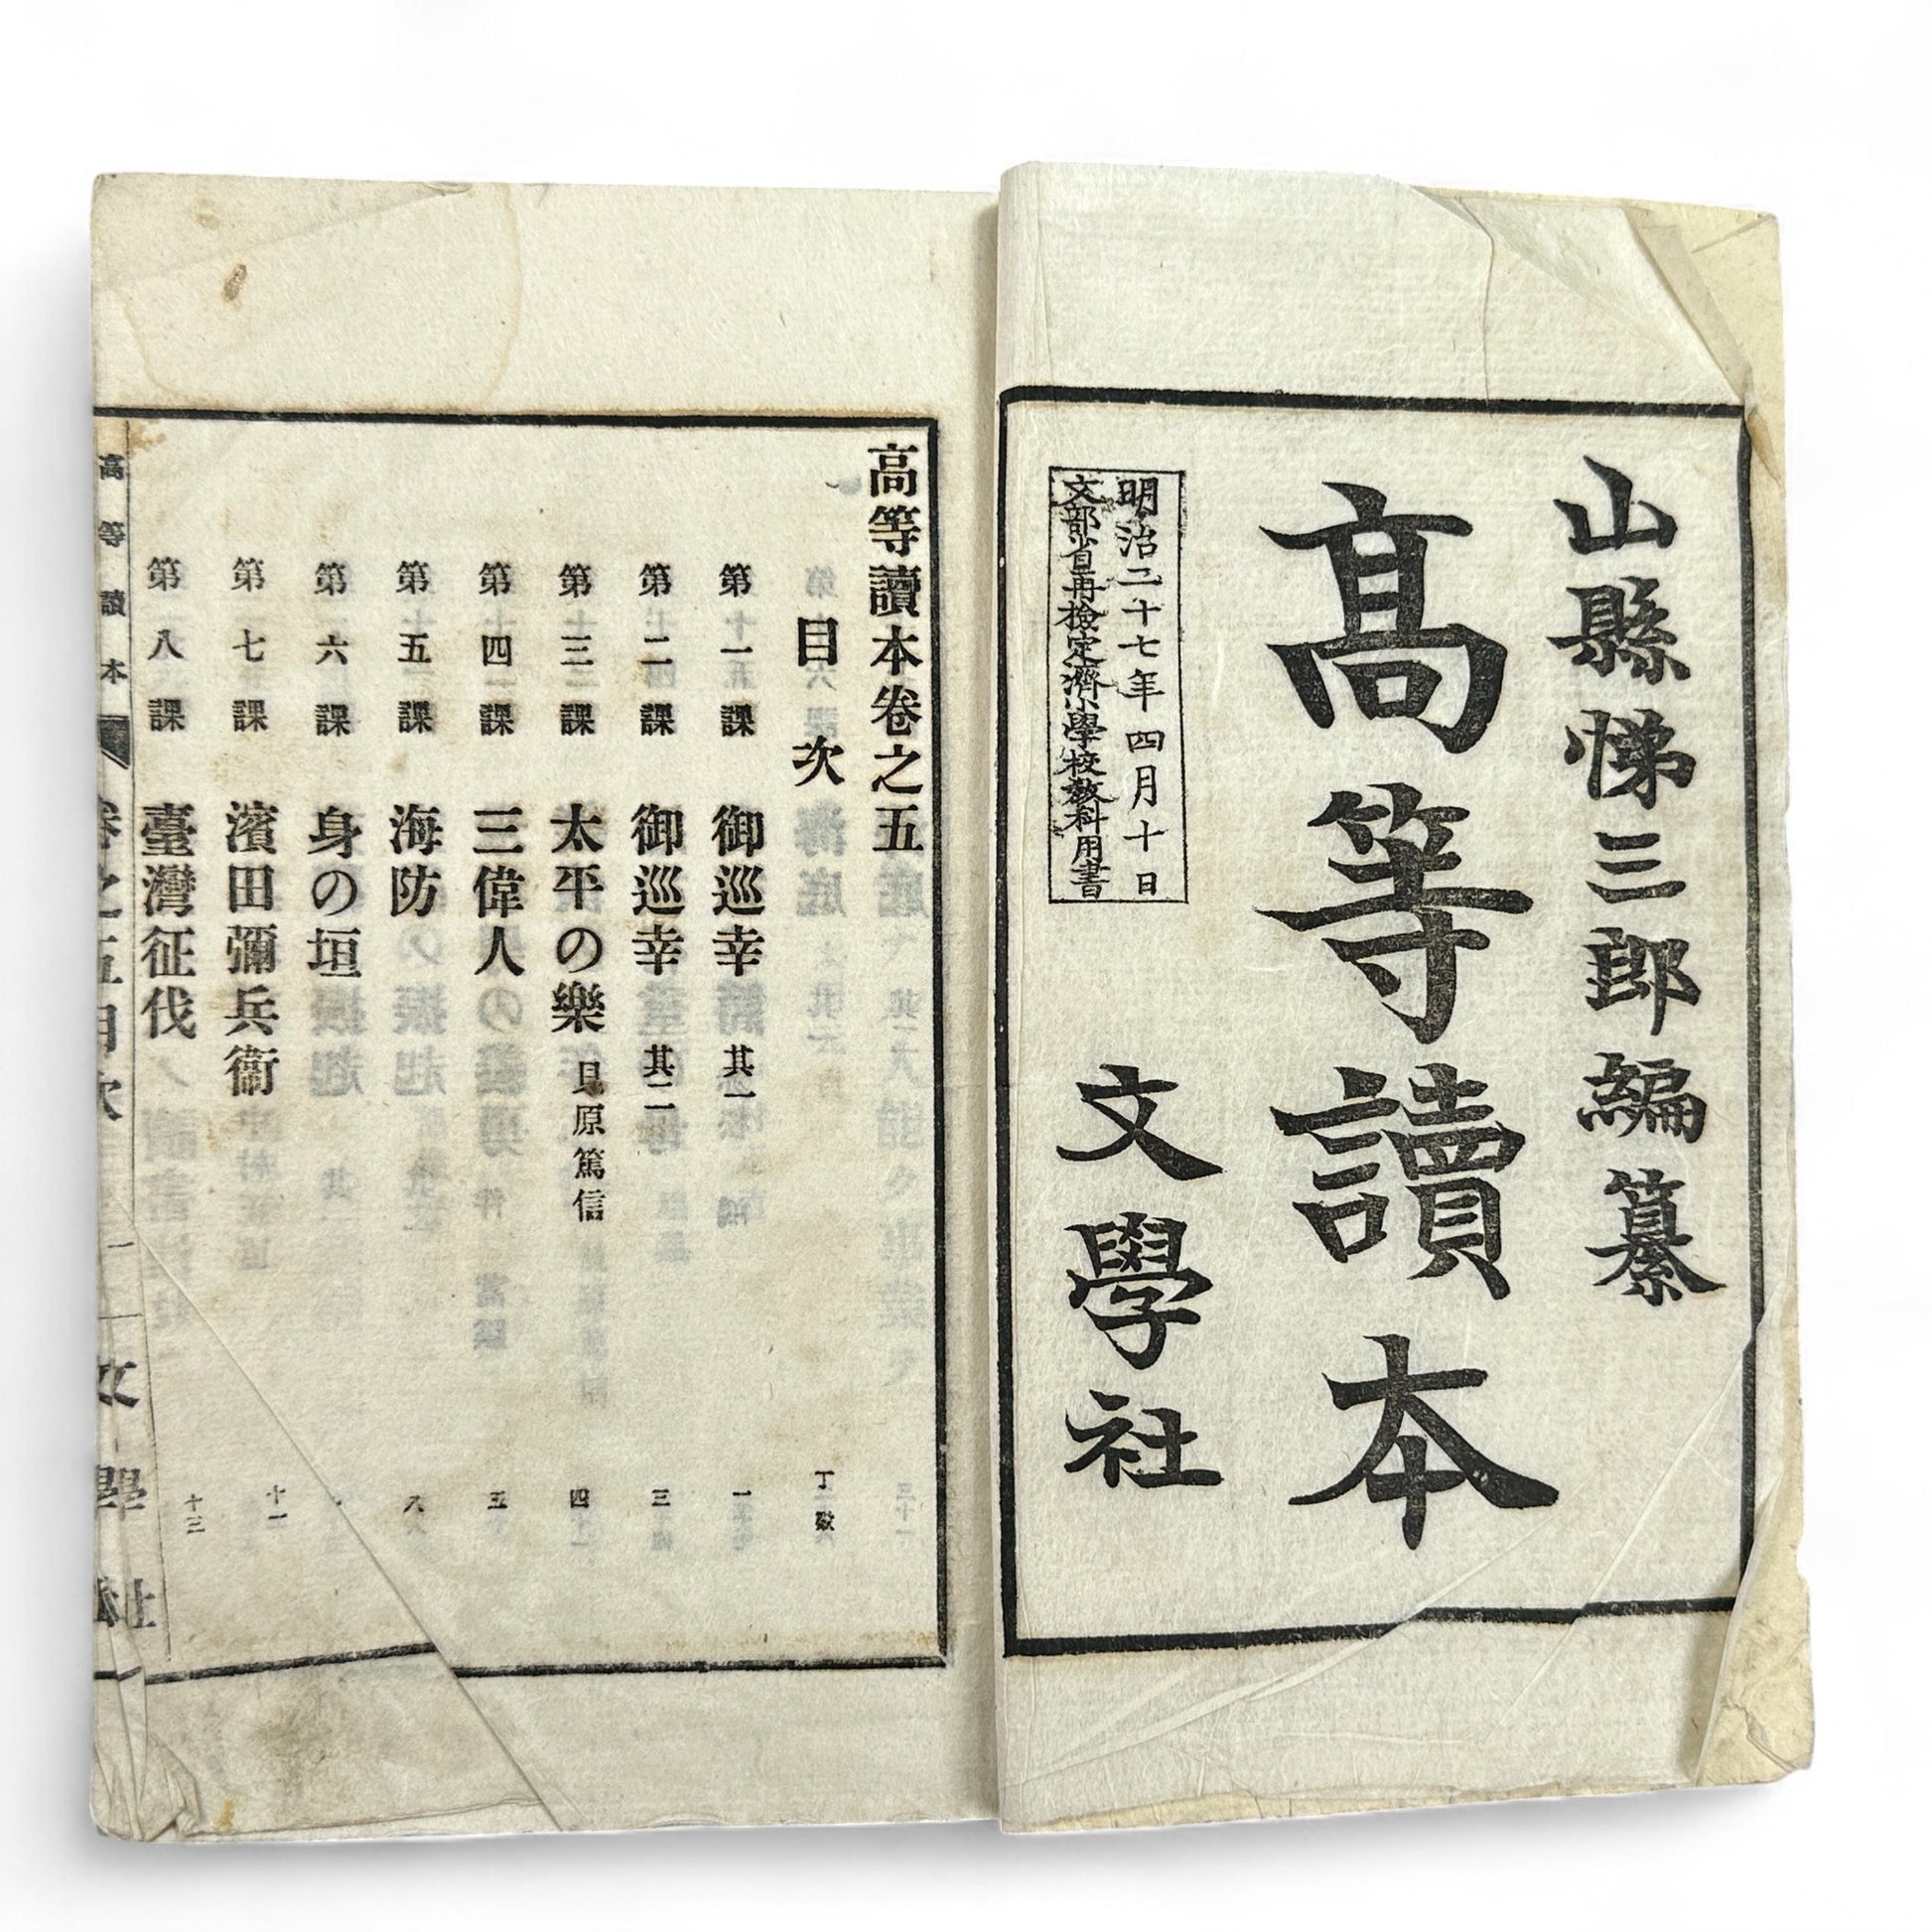 山縣悌三郎編纂
高等讀本
明治二十七年四月十日
文部省再檢定濟小學校敎科用書
文學社
高等讀本卷之五
目次 丁數
第一課 御巡幸 其一 一
第二課 御巡幸 其二 三
第三課 太平の樂 貝原篤信 四
第四課 三偉人 五
第五課 海防 六
第六課 身の垣
第七課 濱田彌兵衞 十一
第八課 臺灣征伐 十三
高等讀本 卷之五目次 一 文學社